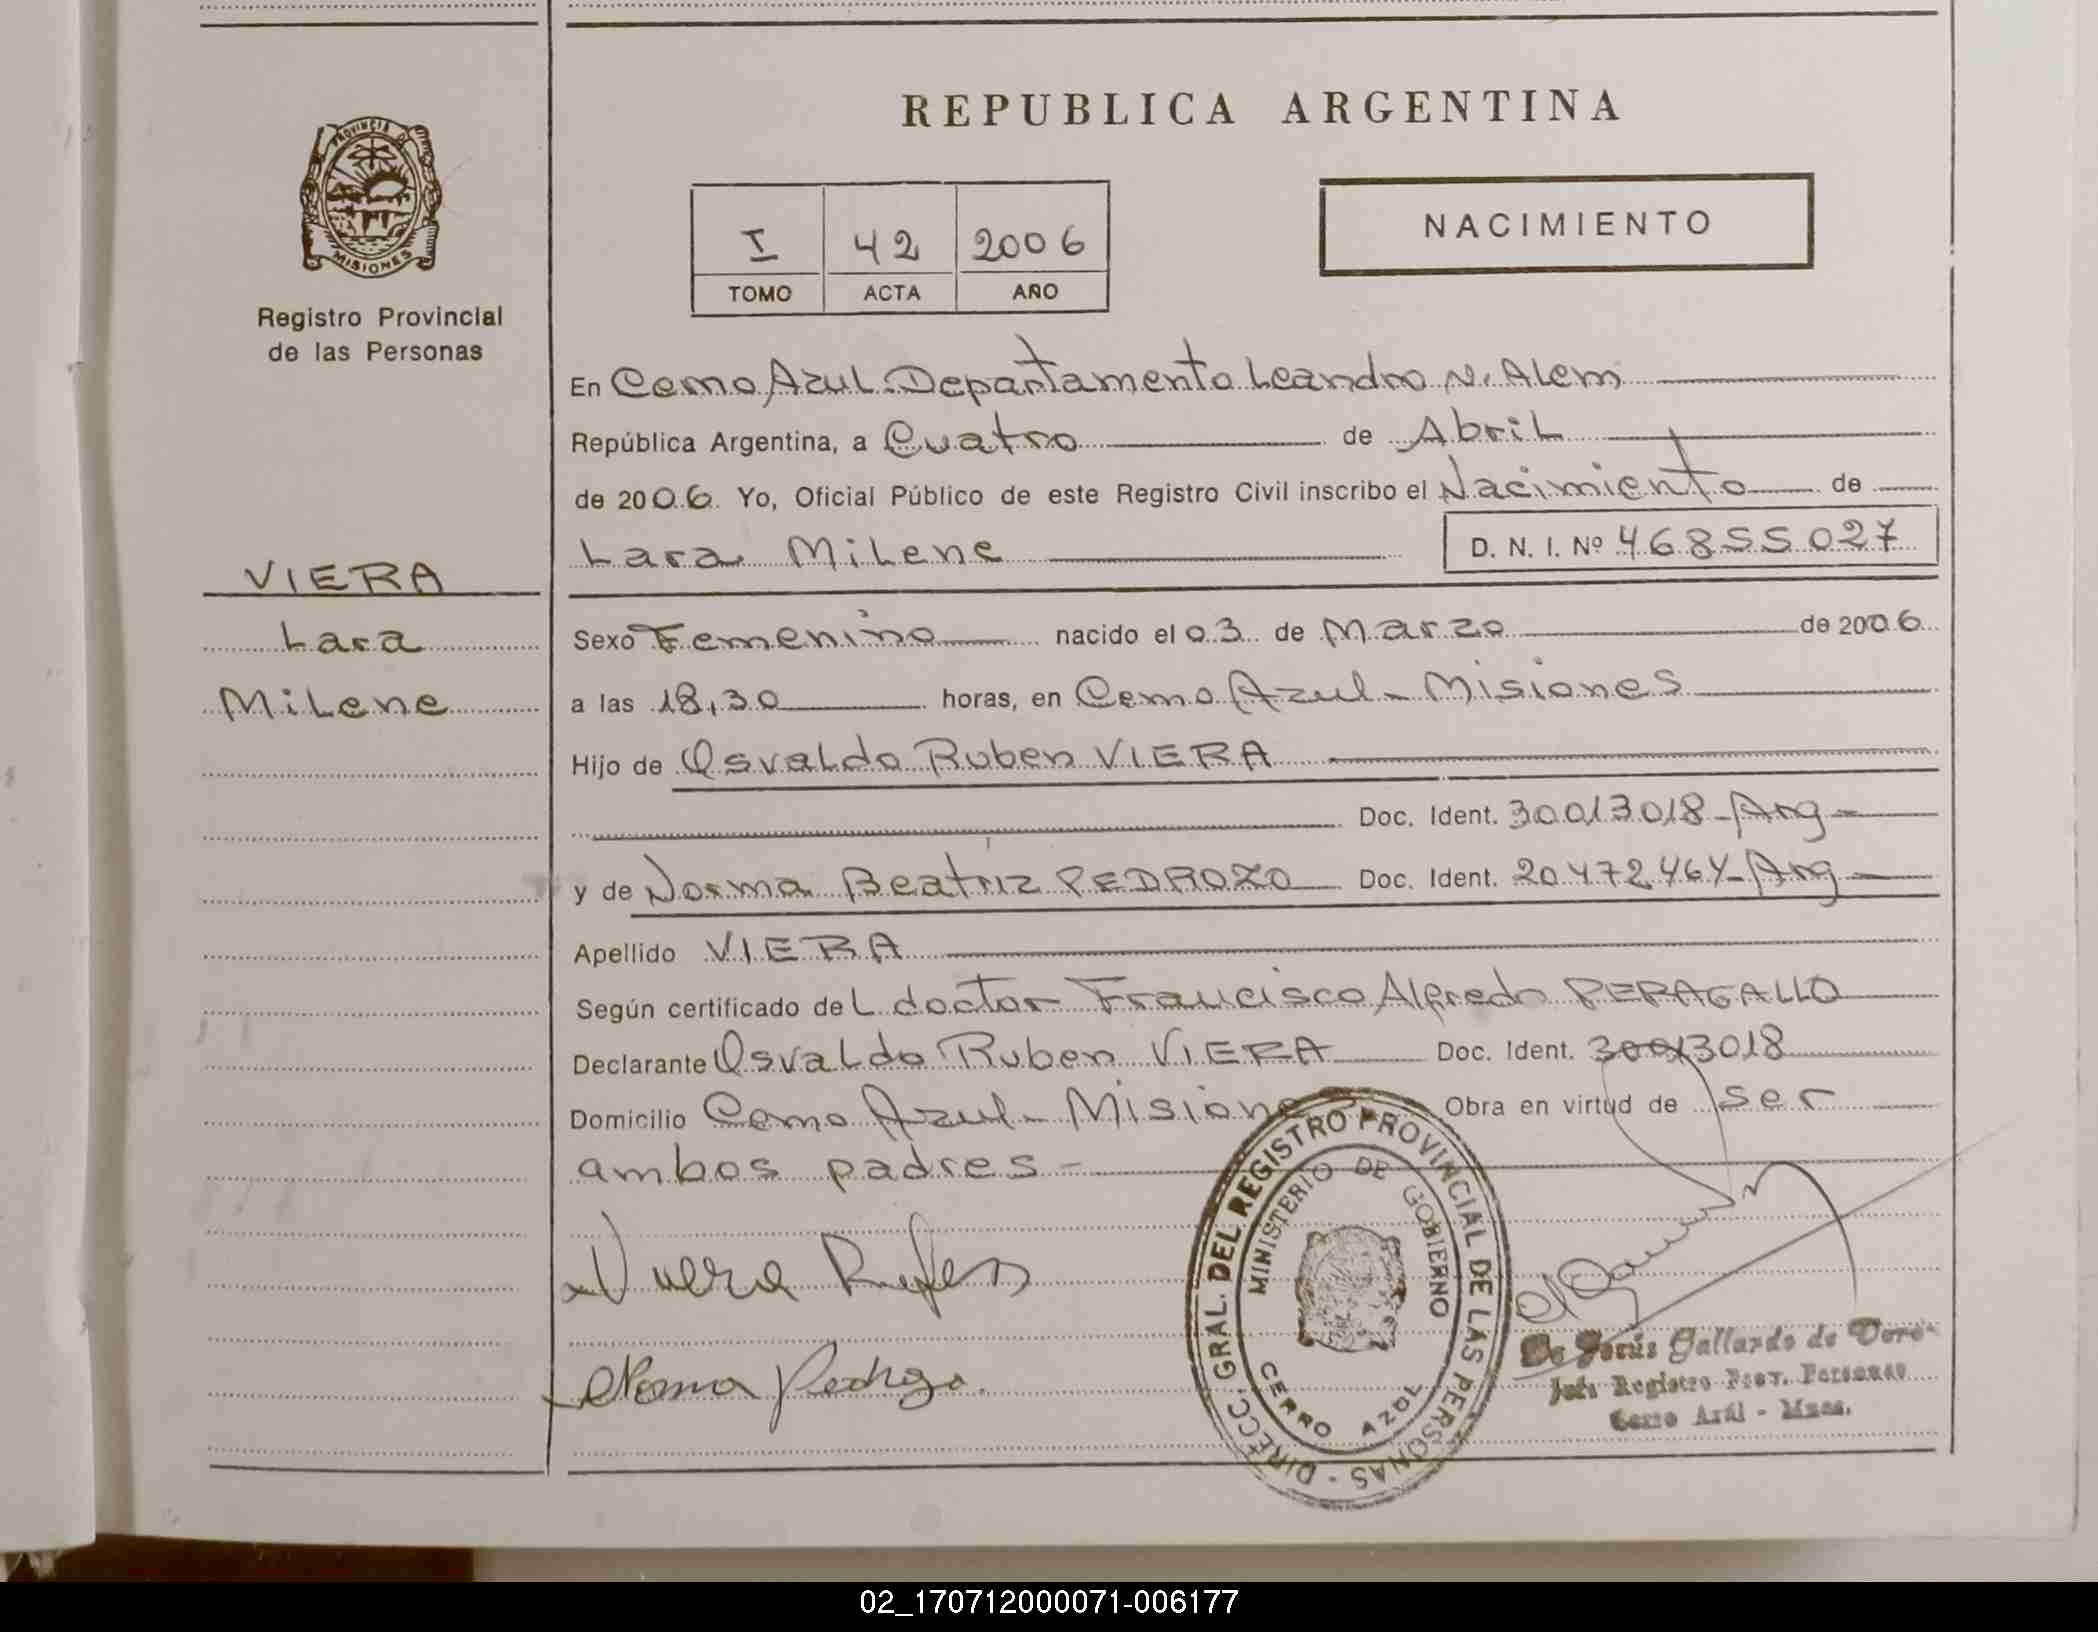 REPUBLICA ARGENTINA
PROVINCIA DE
MISIONES
Registro Provincial
de las Personas
I 42 2006
TOMO ACTA AÑO
NACIMIENTO
En Cerro Azul Departamento Leandro N. Alem
República Argentina, a Cuatro de Abril
de 2006 Yo, Oficial Público de este Registro Civil inscribo el Nacimiento de
Lara Milene D. N. I. Nº 46855027
VIERA
Lara
Milene
Sexo Femenino nacido el 03 de Marzo de 2006
a las 18,30 horas, en Cerro Azul - Misiones
Hijo de Osvaldo Ruben VIERA
Doc. Ident. 30013018 - Arg -
y de Norma Beatriz PEDROZO Doc. Ident. 20472464 - Arg -
Apellido VIERA
Según certificado del doctor Francisco Alfredo PERAGALLO
Declarante Osvaldo Ruben VIERA Doc. Ident. 30013018
Domicilio Cerro Azul - Misiones Obra en virtud de ser
ambos padres -
DIRECC. GRAL. DEL REGISTRO PROVINCIAL DE LAS PERSONAS -
MINISTERIO DE GOBIERNO
CERRO AZUL
Norma Pedrozo.
Gallardo de
Jefe Registro Prov. Personas
Cerro Azúl - Mnes.
02_170712000071-006177